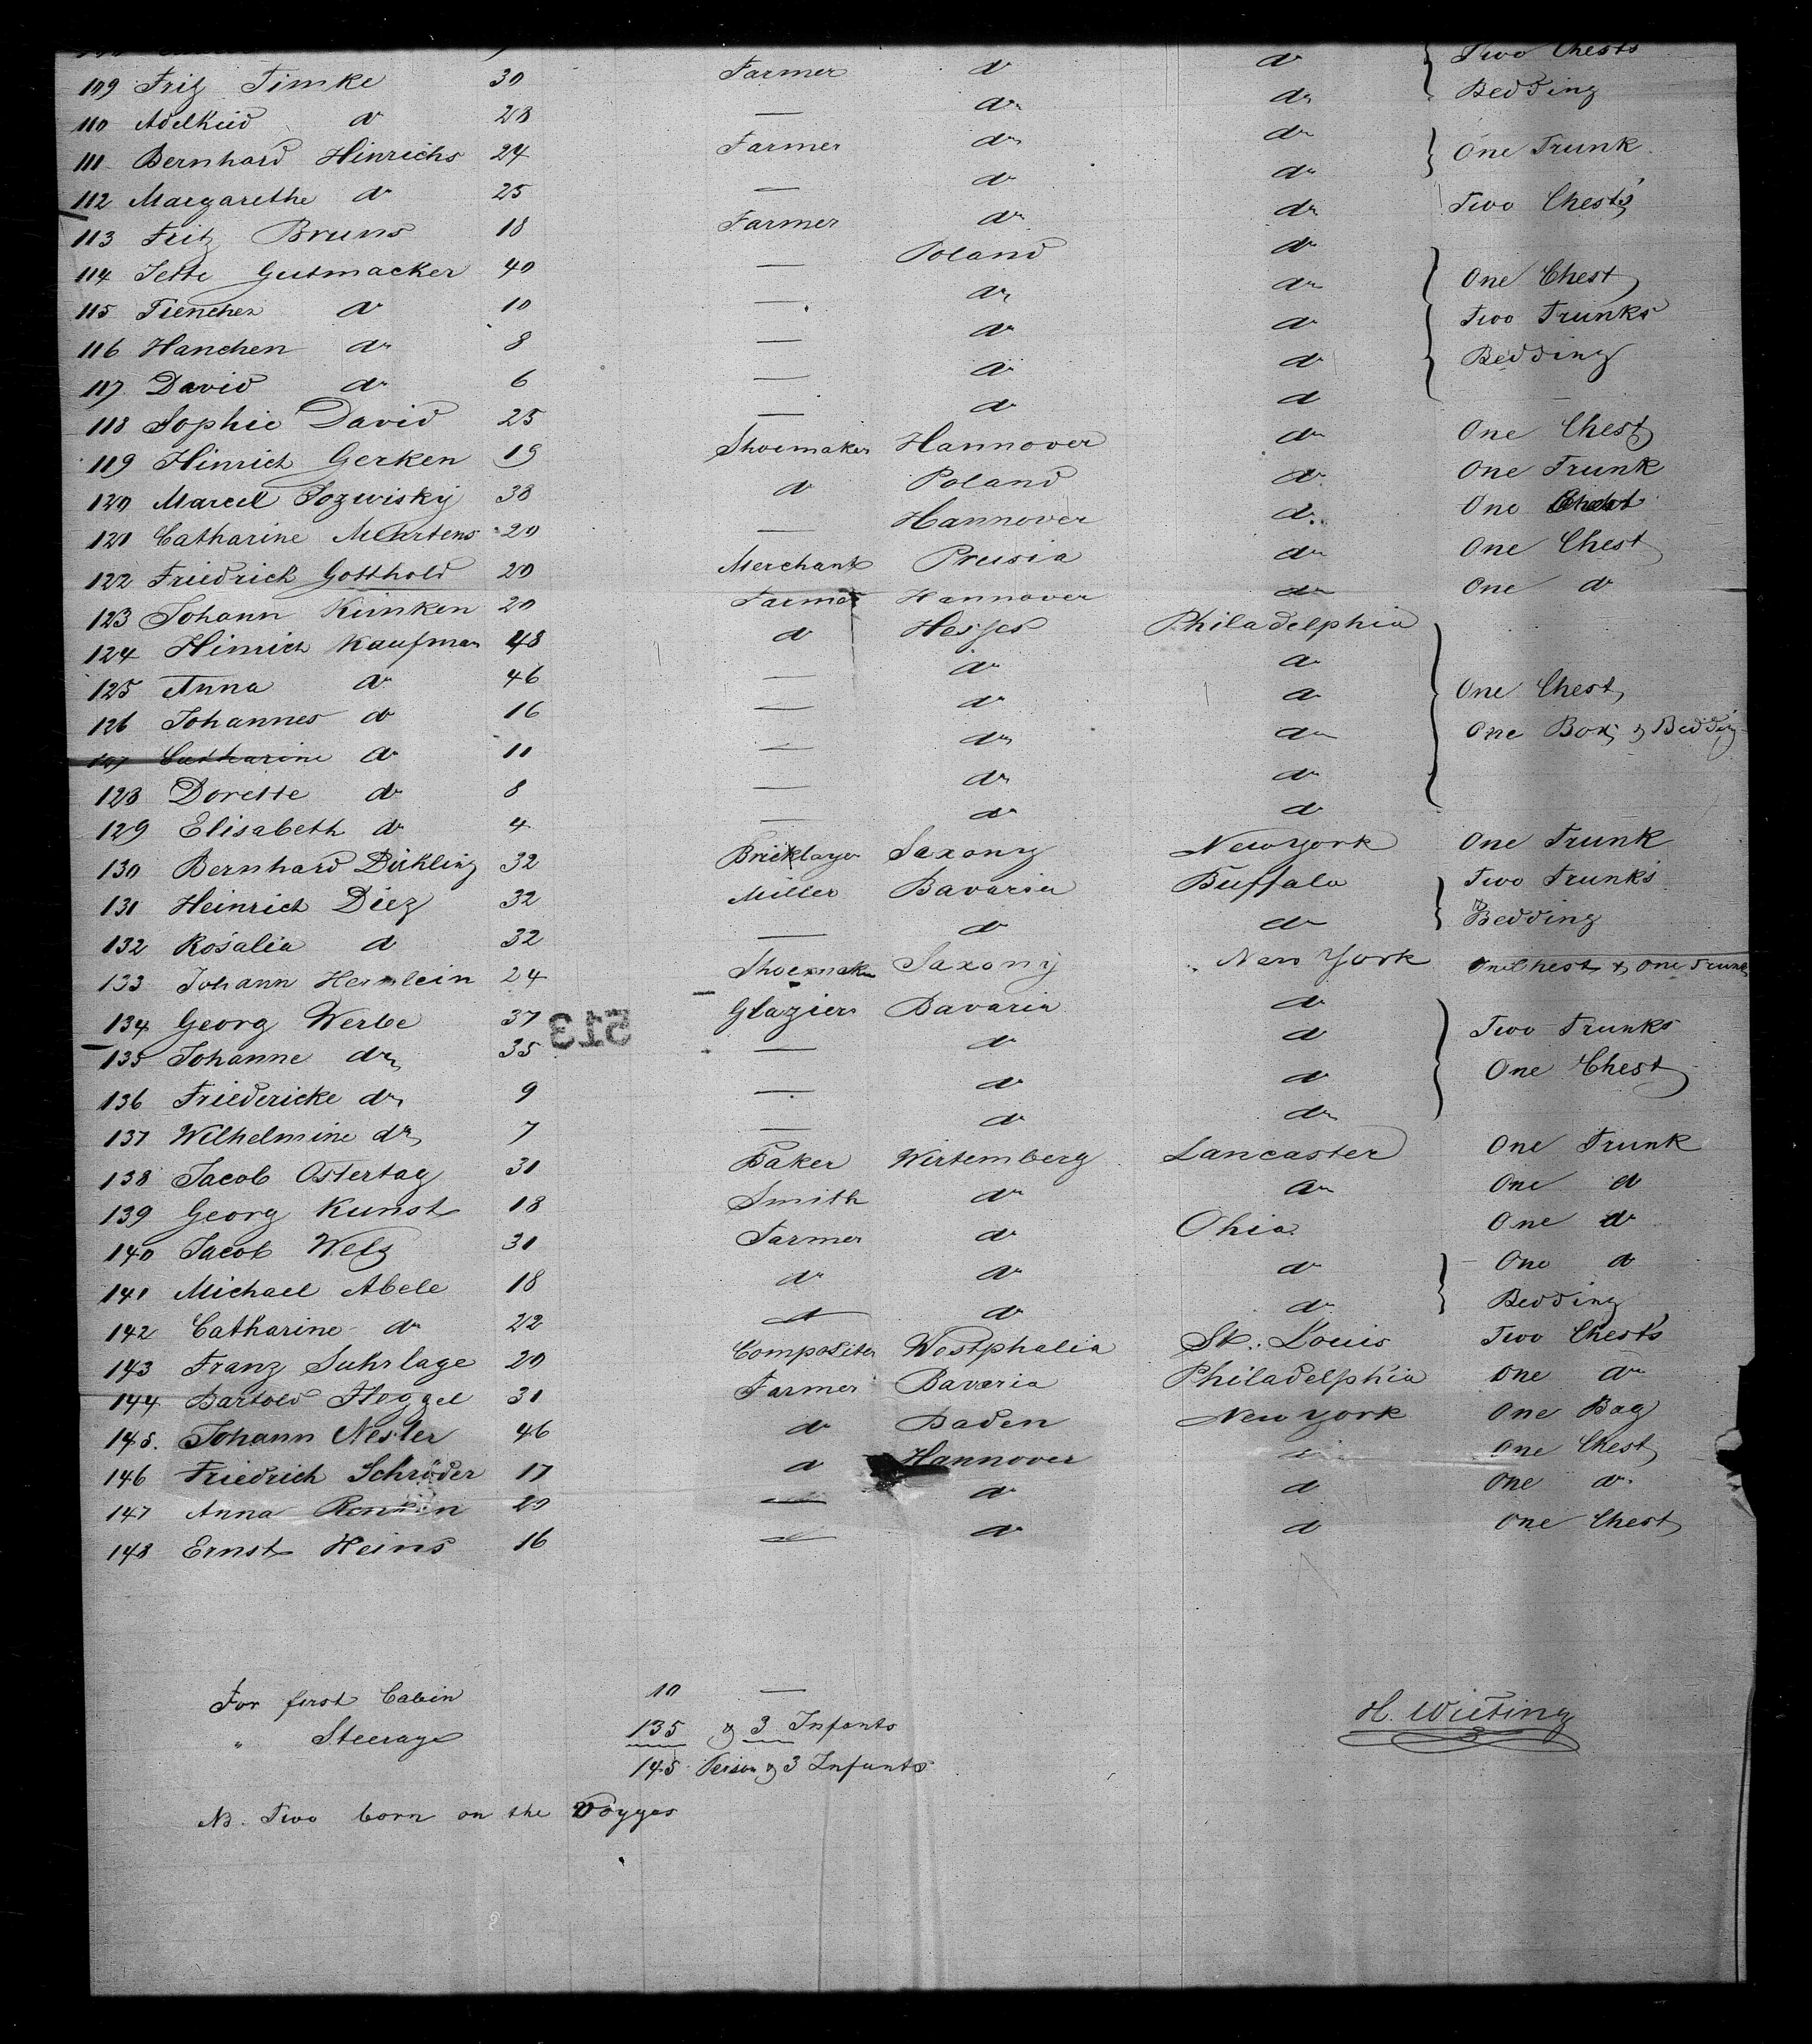 Two Chests
109 Friz Timke 30 Farmer do do Bedding
110 Adelheid do 28 — do do
111 Bernhard Hinrichs 24 Farmer do do One Trunk
112 Margarethe do 25 — do do
113 Fritz Bruns 18 Farmer do do Two Chests
114 Jette Gutmacker 40 — Poland do
115 Fienchen do 10 — do do One Chest
116 Hanchen do 8 — do do Two Trunks
117 David do 6 — do do Bedding
118 Sophie David 25 — do do
119 Hinrich Gerken 19 Shoemaker Hannover do One Chest
120 Marcel Sozwisky 38 do Poland do One Trunk
121 Catharine Mehrtens 20 — Hannover do One Chest
122 Friedrich Gotthold 20 Merchant Preusia do One Chest
123 Johann Kimken 20 Farmer Hannover do One do
124 Hinrich Kaufman 48 do Hesses Philadelphia
125 Anna do 46 — do do One Chest
126 Johannes do 16 — do do One Box & Bedding
127 Catharine do 11 — do do
128 Dorette do 8 — do do
129 Elisabeth do 4 — do do
130 Bernhard Dirkling 32 Bricklayer Saxony New York One Trunk
131 Heinrich Diez 32 Miller Bavaria Buffalo Two Trunks
132 Rosalia do 32 — do do Bedding
133 Johann Hermlein 24 Shoemaker Saxony New York One Chest & One Trunk
134 Georg Werbe 37 Glazier Bavaria do
513
135 Johanne do 35 — do do Two Trunks
136 Friedericke do 9 — do do One Chest
137 Wilhelmine do 7 — do do
138 Jacob Ostertag 31 Baker Wirtemberg Lancaster One Trunk
139 Georg Kunst 18 Smith do do One do
140 Jacob Welz 31 Farmer do Ohio One do
141 Michael Abele 18 do do do One do
142 Catharine do 22 — do do Bedding
143 Franz Suhrlage 20 Compositer Westphalia St. Louis Two Chests
144 Bartold Fleggel 31 Farmer Bavaria Philadelphia One do
145. Johann Nesler 46 do Baden New York One Bag
146 Friedrich Schröder 17 do Hannover do One Chest
147 Anna Renken 20 — do do One do
148 Ernst Heins 16 — do do One Chest
For first Cabin 10 —
" Steerage 135 & 3 Infants
H. Wieting
145 Person & 3 Infants
NB. Two born on the Voyges